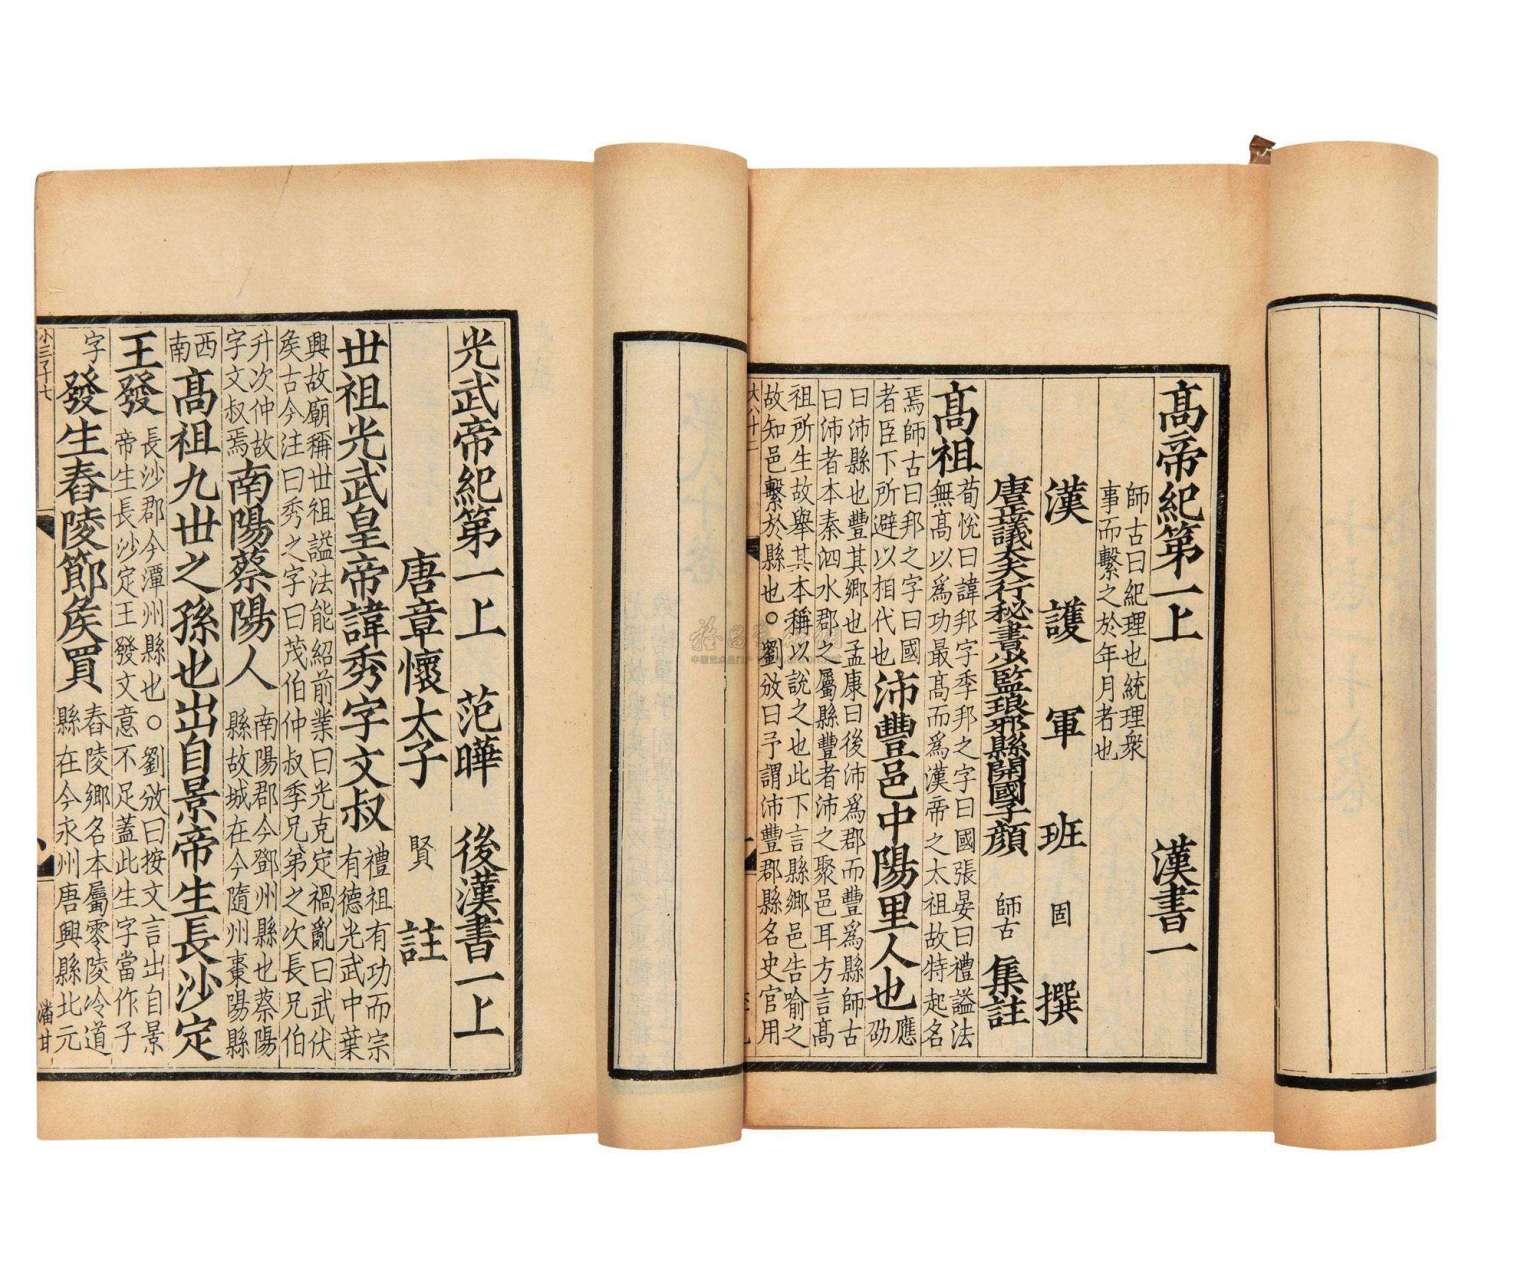 髙帝紀第一上　漢書一
師古曰紀理也統理衆
事而繫之於年月者也
漢護軍班固撰
唐正議大夫行秘書少監琅邪縣開國子顔師古集註
髙祖
荀悅曰諱邦字季邦之字曰國張晏曰禮謚法
無髙以爲功最髙而爲漢帝之太祖故特起名
焉師古曰邦之字曰國
者臣下所避以相代也
沛豐邑中陽里人也
應
劭
曰沛縣也豐其鄉也孟康曰後沛爲郡而豐爲縣師古
曰沛者本秦泗水郡之屬縣豐者沛之聚邑耳方言髙
祖所生故舉其本稱以說之也此下言縣鄉邑告喻之
故知邑繫於縣也○劉攽曰予謂沛豐郡縣名史官用
光武帝紀第一上　范曄　後漢書一上
唐章懷太子賢註
丗祖光武皇帝諱秀字文叔
禮祖有功而宗
有德光武中葉
興故廟稱丗祖謚法能紹前業曰光克定禍亂曰武伏
矦古今注曰秀之字曰茂伯仲叔季兄弟之次長兄伯
升次仲故
字文叔焉
南陽蔡陽人
南陽郡今鄧州縣也蔡陽
縣故城在今隨州棗陽縣
西
南
髙祖九丗之孫也出自景帝生長沙定
王發
長沙郡今潭州縣也○劉攽曰按文言出自景
帝生長沙定王發文意不足蓋此生字當作子
字
發生舂陵節矦買
舂陵鄉名本屬零陵泠道
縣在今永州唐興縣北元
小三千七
潘甘